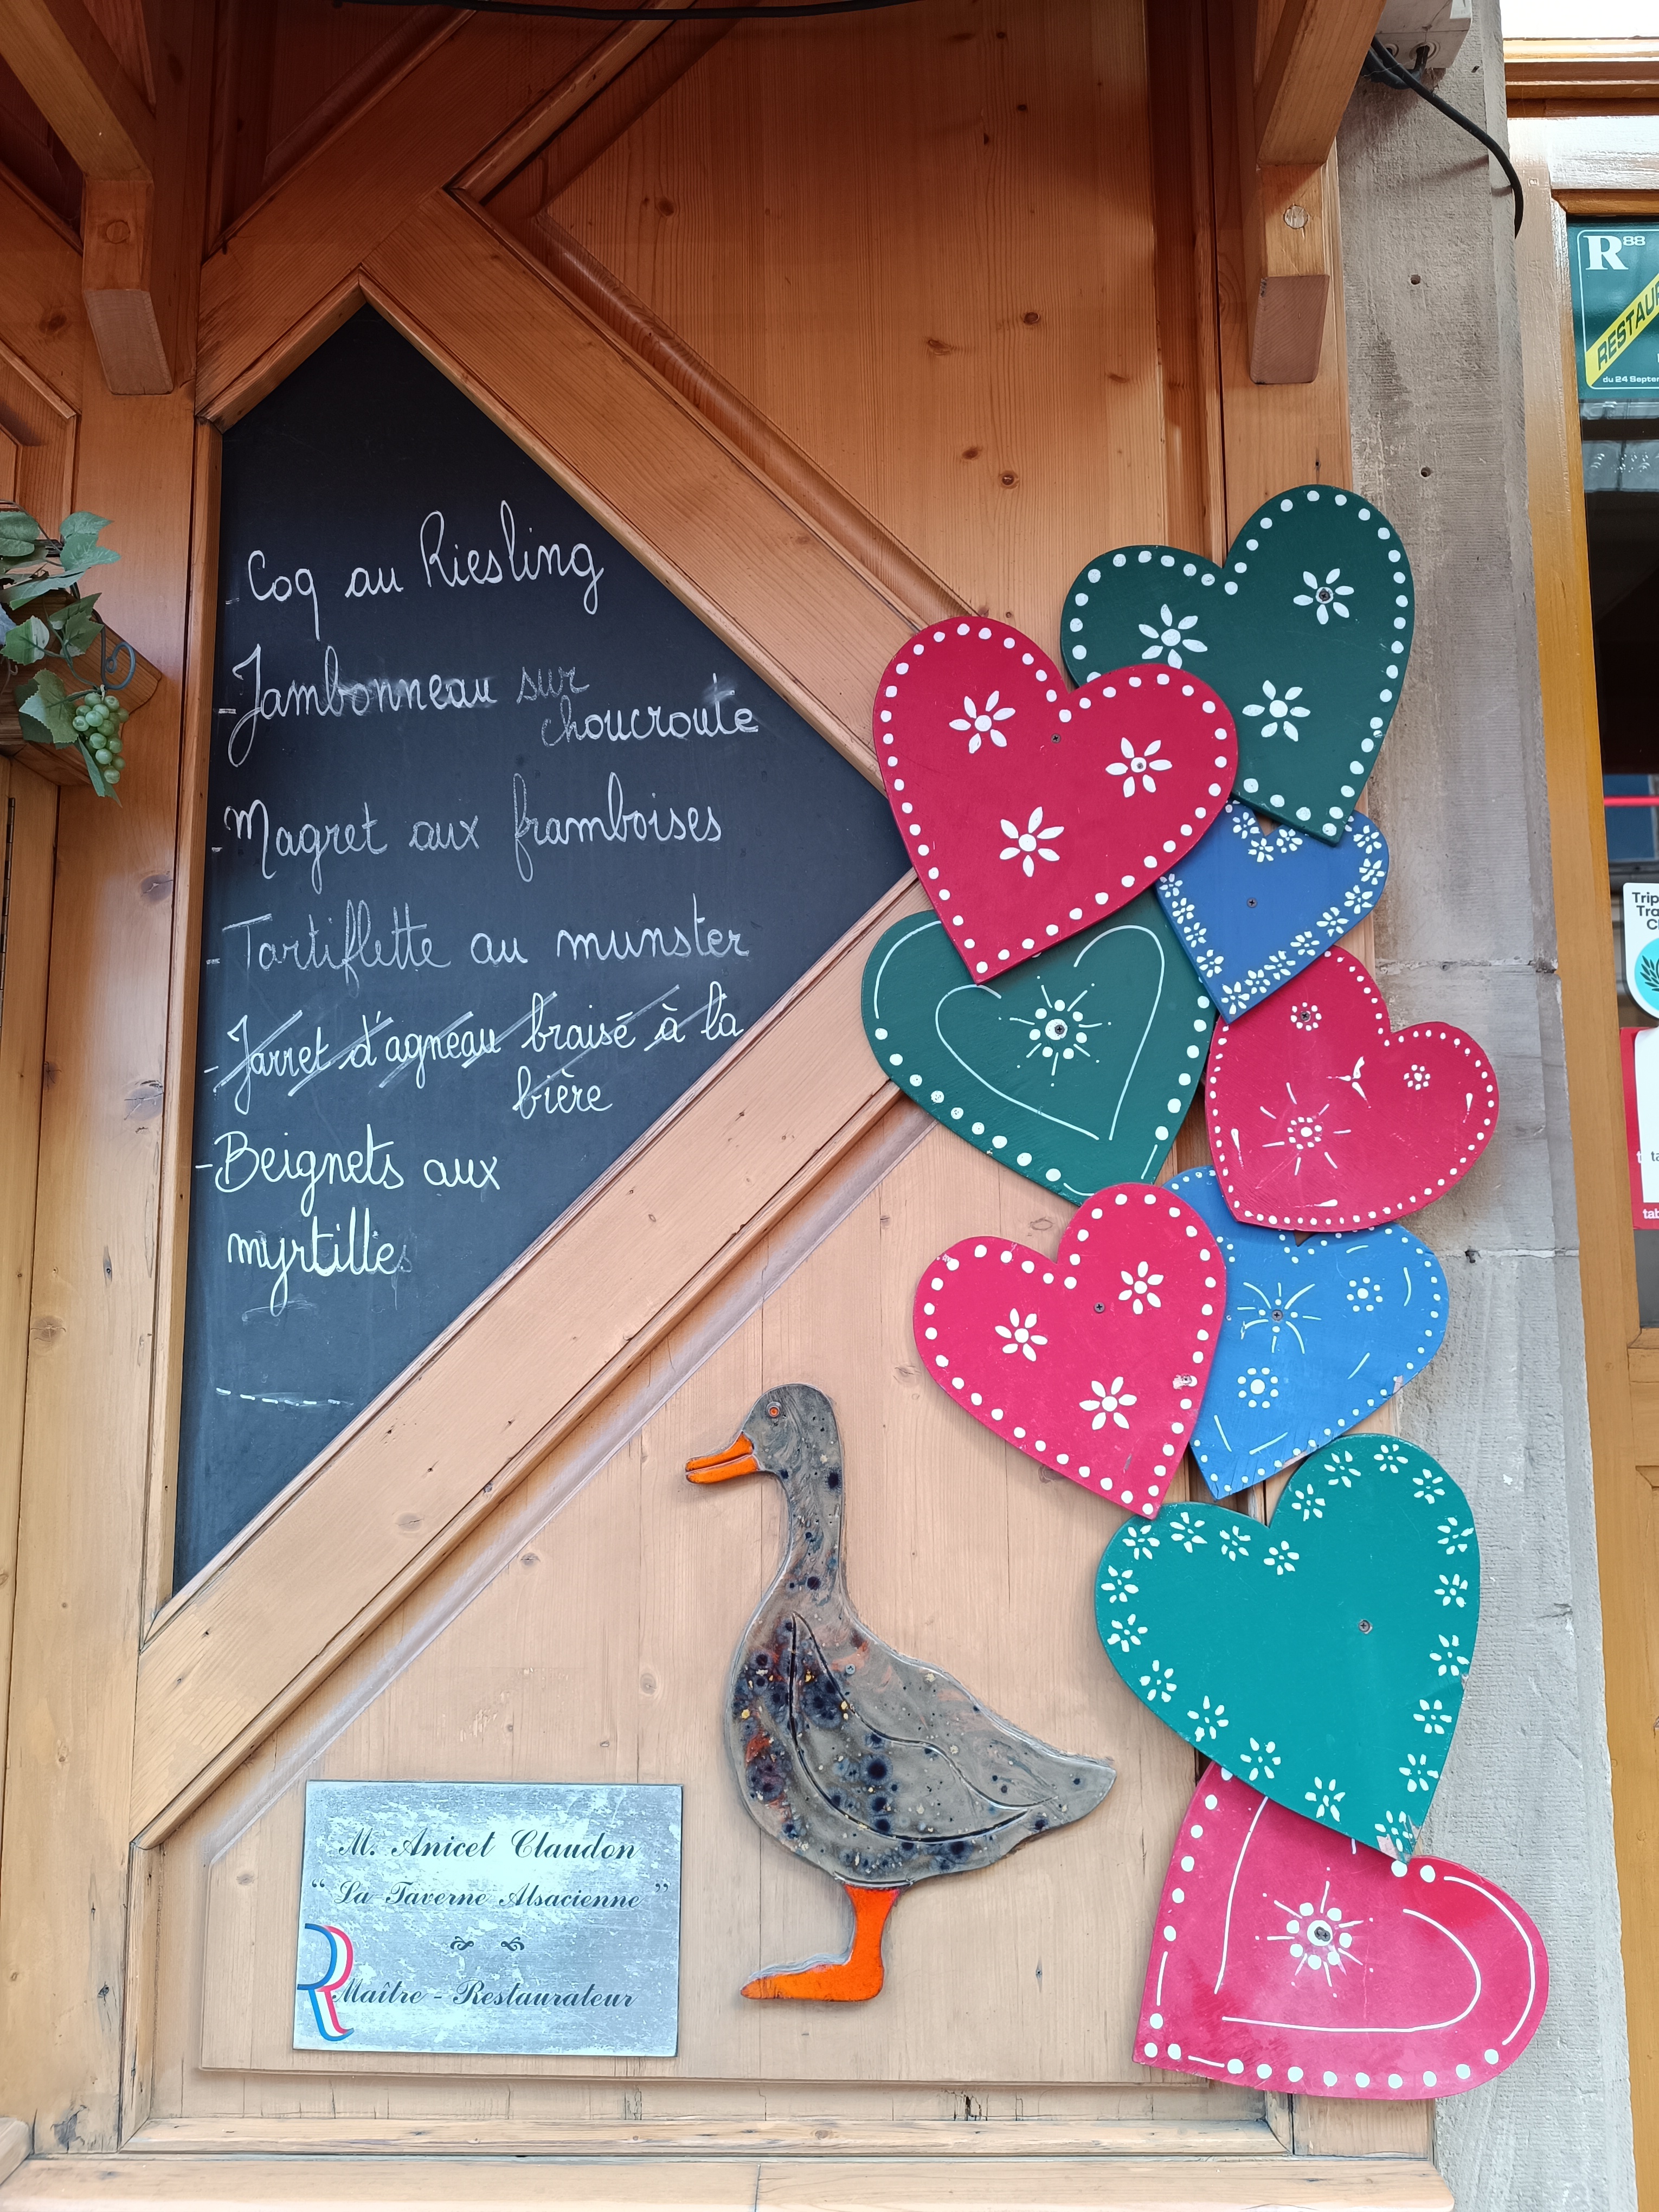 - Coq au Riesling
- Jambonneau sur
choucroute
- Magret aux framboises
- Tartiflette au munster
- Jarret d'agneau braisé à la
bière
- Beignets aux
myrtilles
M. Anicet Claudon
“La Taverne Alsacienne”
Maître - Restaurateur
R 88
du 24